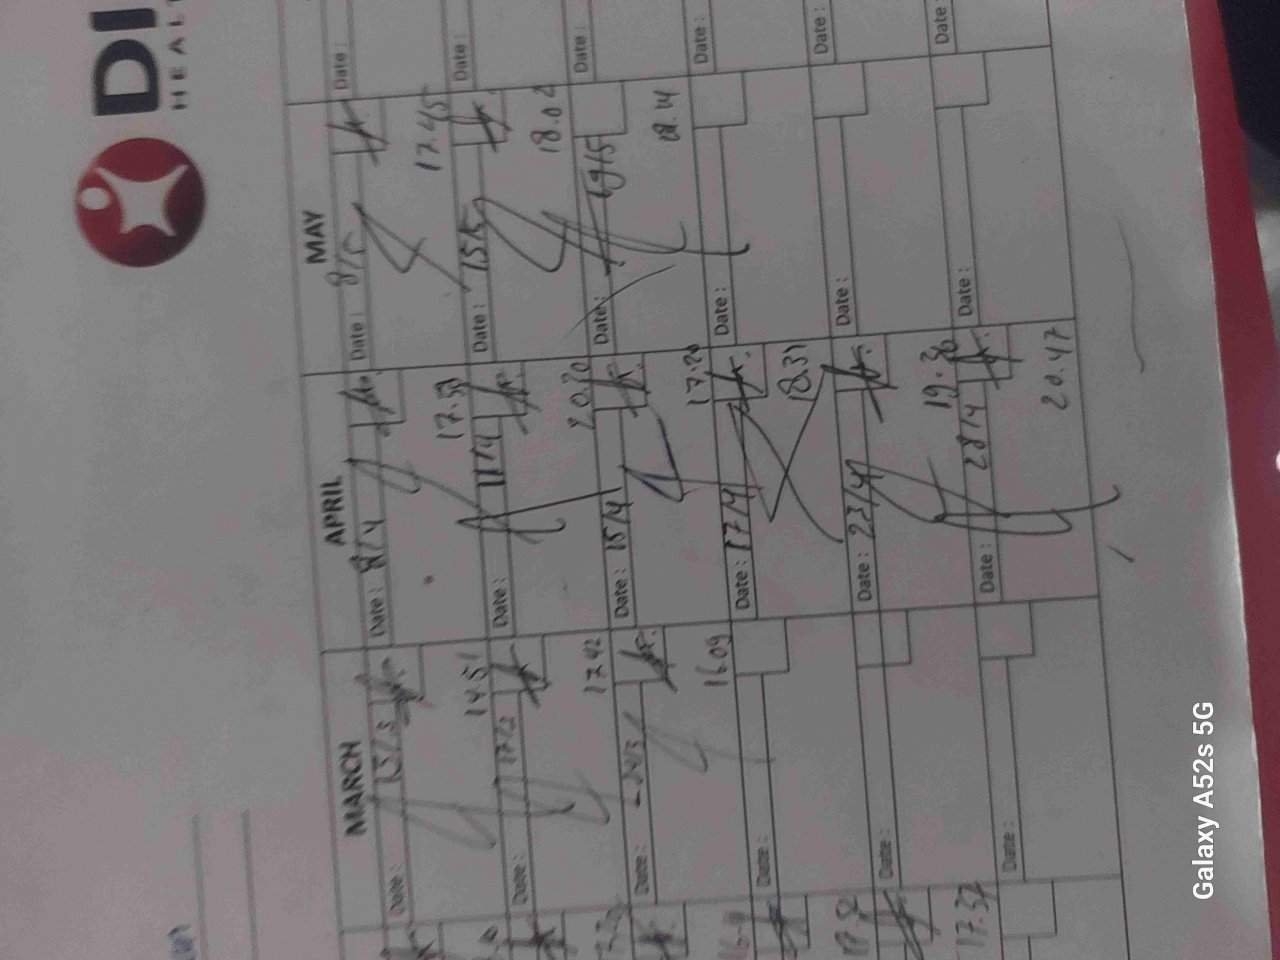 DI
HEALT
MARCH
APRIL
MAY
Date : 13/3
14.51
Date : 8/4
17.53
Date : 8/5
17.45
Date :
Date : 17/3
17.42
Date : 11/4
20.20
Date : 15/5
18.02
Date :
Date : 24/3
16.09
Date : 15/4
17.20
Date : 19/5
18.14
Date :
Date :
Date : 17/4
18.31
Date :
Date :
Date :
Date : 23/4
19.36
Date :
Date :
Date :
Date : 28/4
20.47
Date :
Date :
17.52
Galaxy A52s 5G